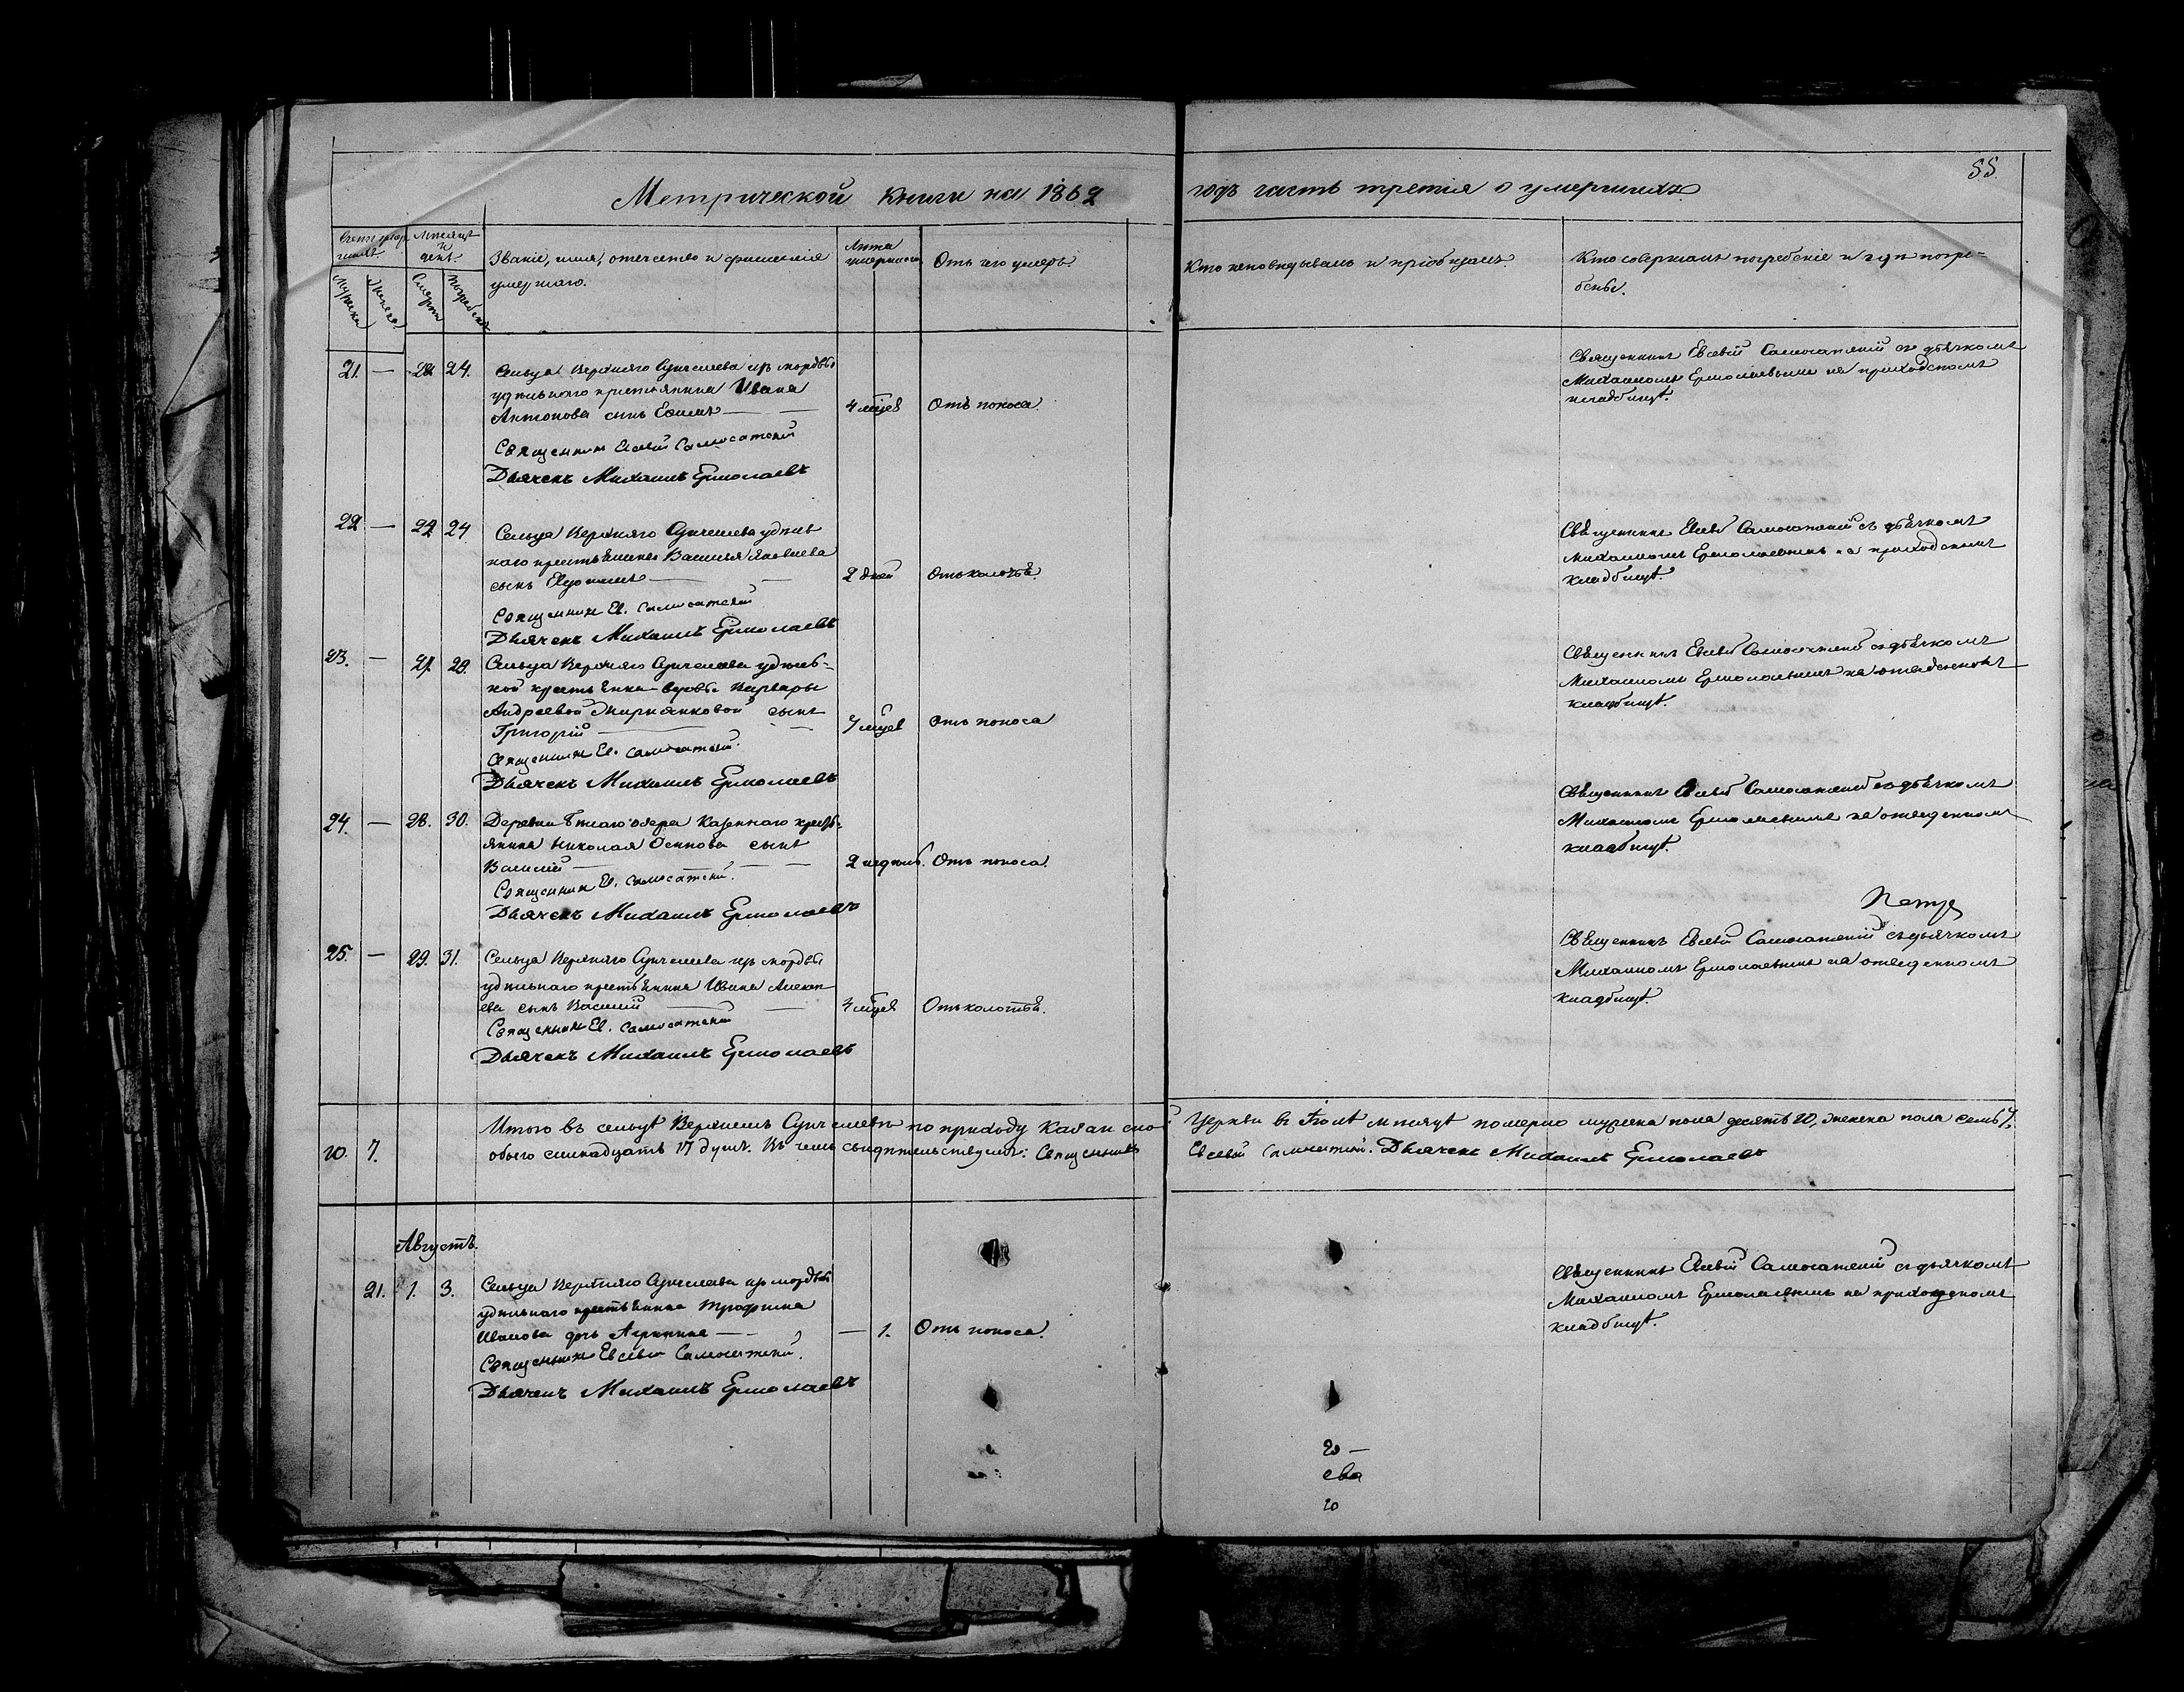 55
Метрической книги на 1862 годъ часть третія о умершихъ
Счетъ умер
шихъ.
Мѣсяцъ
и
день.
Мужска
Женска
Смерти
Погребенія
Званіе, имя, отчество и фамилія
умершаго.
Лѣта
умершаго
Отъ чего умеръ.
Кто исповѣдывалъ и пріобщалъ.
Кто совершалъ погребеніе и гдѣ погре-
бены.
21. — 22. 24. Сельца Верхняго Сунчелеева изъ мордвы
удѣльнаго крестьянина Ивана
Антонова сынъ Ефимъ — — 4 мѣцев Отъ поноса.
Священникъ Евсевій Самосатскій
Дьячекъ Михаилъ Ермолаевъ
Священникъ Евсевій Самосатскій съ дьячкомъ
Михаиломъ Ермолаевымъ на приходскомъ
кладбищѣ.
22 — 22 24 Сельца Верхняго Сунчелеева удѣль
наго крестьянина Василья Яковлева
сынъ — — 2 дней Отъ колотья.
Священникъ Ев. Самосатскій
Дьячекъ Михаилъ Ермолаевъ
Священникъ Евсевій Самосатскій съ дьячкомъ
Михаиломъ Ермолаевымъ на приходскомъ
кладбищѣ.
23. — 27. 29. Сельца Верхняго Сунчелеева удѣль-
ной крестьянки вдовы Варвары
Андреевой сынъ
Григорій — — 7 мѣцев Отъ поноса
Священникъ Ев. Самосатскій.
Дьячекъ Михаилъ Ермолаевъ
Священникъ Евсевій Самосатскій съ дьячкомъ
Михаиломъ Ермолаевымъ на отведенномъ
кладбищѣ.
24. — 28. 30. Деревни Бѣлаго озера Казеннаго кресть-
янина Николая Осипова сынъ
Василій — — 2 недѣль. Отъ поноса.
Священникъ Ев. Самосатскій.
Дьячекъ Михаилъ Ермолаевъ
Священникъ Евсевій Самосатскій съ дьячкомъ
Михаиломъ Ермолаевымъ на отведенномъ
кладбищѣ.
Петр
25. — 29. 31. Сельца Верхняго Сунчелеева изъ мордвы
удѣльнаго крестьянина Ивана Алексѣ
ева сынъ Василій — — мѣцев Отъ колотья.
Священникъ Ев. Самосатскій
Дьячекъ Михаилъ Ермолаевъ
Священникъ Евсевій Самосатскій съ дьячкомъ
Михаиломъ Ермолаевымъ на отведенномъ
кладбищѣ.
Итого въ сельцѣ Верхнемъ Сунчелеевѣ по приходу Казанской Церкви въ Іюлѣ мѣсяцѣ померло мужска пола десять 10, женска пола семь 7,
10. 7. обоего семнадцать 17 душъ. Въ чемъ свидѣтельствуемъ: Священникъ Евсевій Самосатскій. Дьячекъ Михаилъ Ермолаевъ
Августъ.
21. 1. 3. Сельца Верхняго Сунчелеева изъ мордвы
удѣльнаго крестьянина Трофима
Иванова дочь Агрипина — — — 1. Отъ поноса.
Священникъ Евсевій Самосатскій.
Дьячекъ Михаилъ Ермолаевъ
Священникъ Евсевій Самосатскій съ дьячкомъ
Михаиломъ Ермолаевымъ на приходскомъ
кладбищѣ.
20 —
ева
10